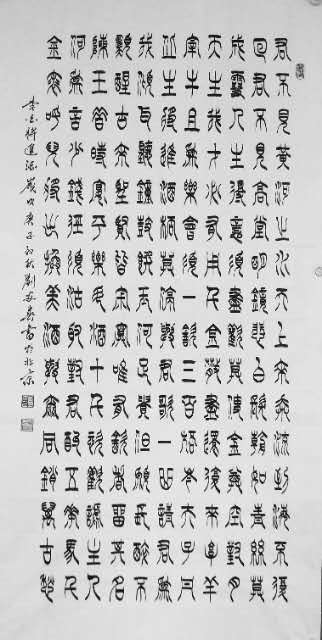 君不見黃河之水天上來奔流到海不復
回君不見高堂明鏡悲白髮朝如青絲暮
成雪人生得意須盡歡莫使金樽空對月
天生我才必有用千金散盡還復來烹羊
宰牛且為樂會須一飲三百杯岑夫子丹
丘生將進酒杯莫停與君歌一曲請君為
我傾耳聽鐘鼓饌玉何足貴但願長醉不
願醒古來聖賢皆寂寞惟有飲者留其名
陳王昔時宴平樂斗酒十千恣歡謔主人
何為言少錢徑須沽取對君酌五花馬千
金裘呼兒將出換美酒與爾同銷萬古愁
李白將進酒歲次庚子初秋劉書於北京